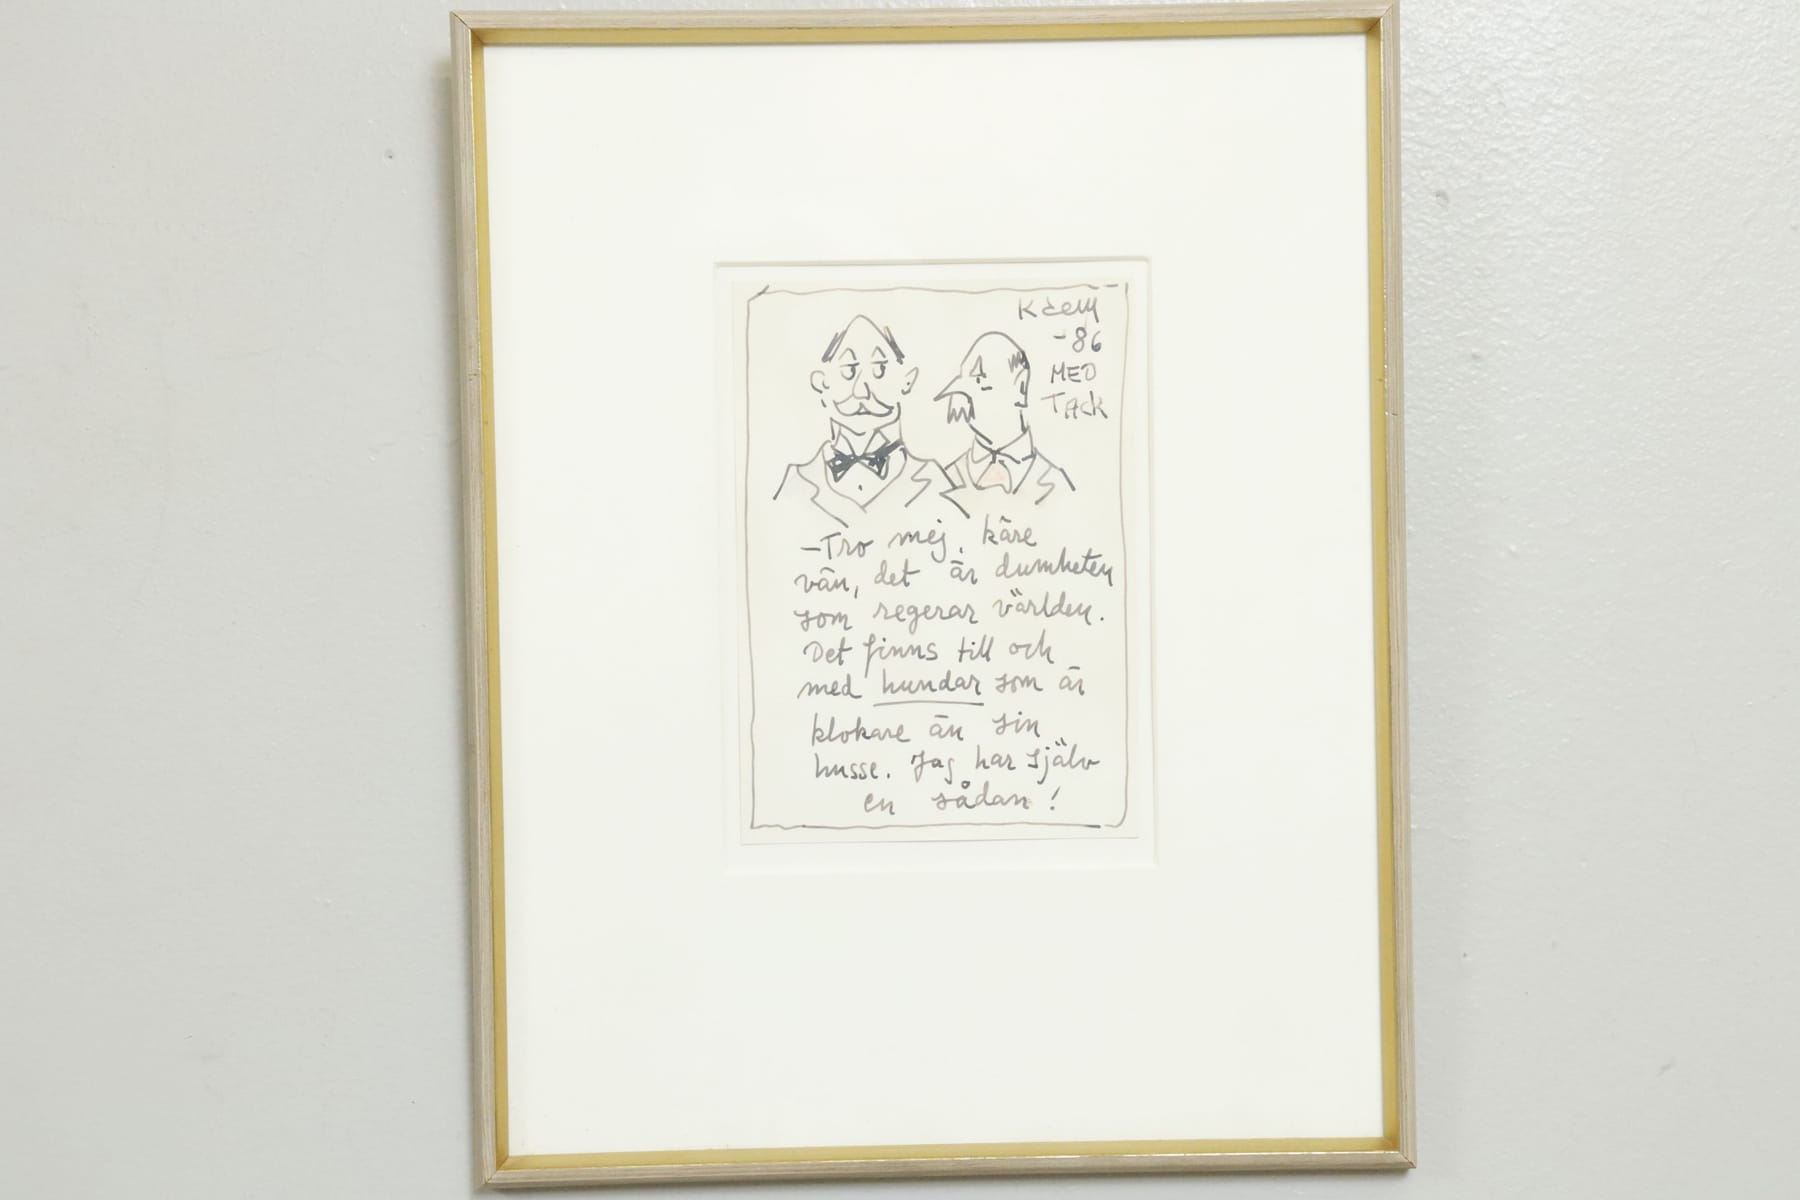 -86
MED
TACK
–Tro mej, käre
vän, det är dumheten
som regerar världen.
Det finns till och
med hundar som är
klokare än sin
husse. Jag har själv
en sådan!